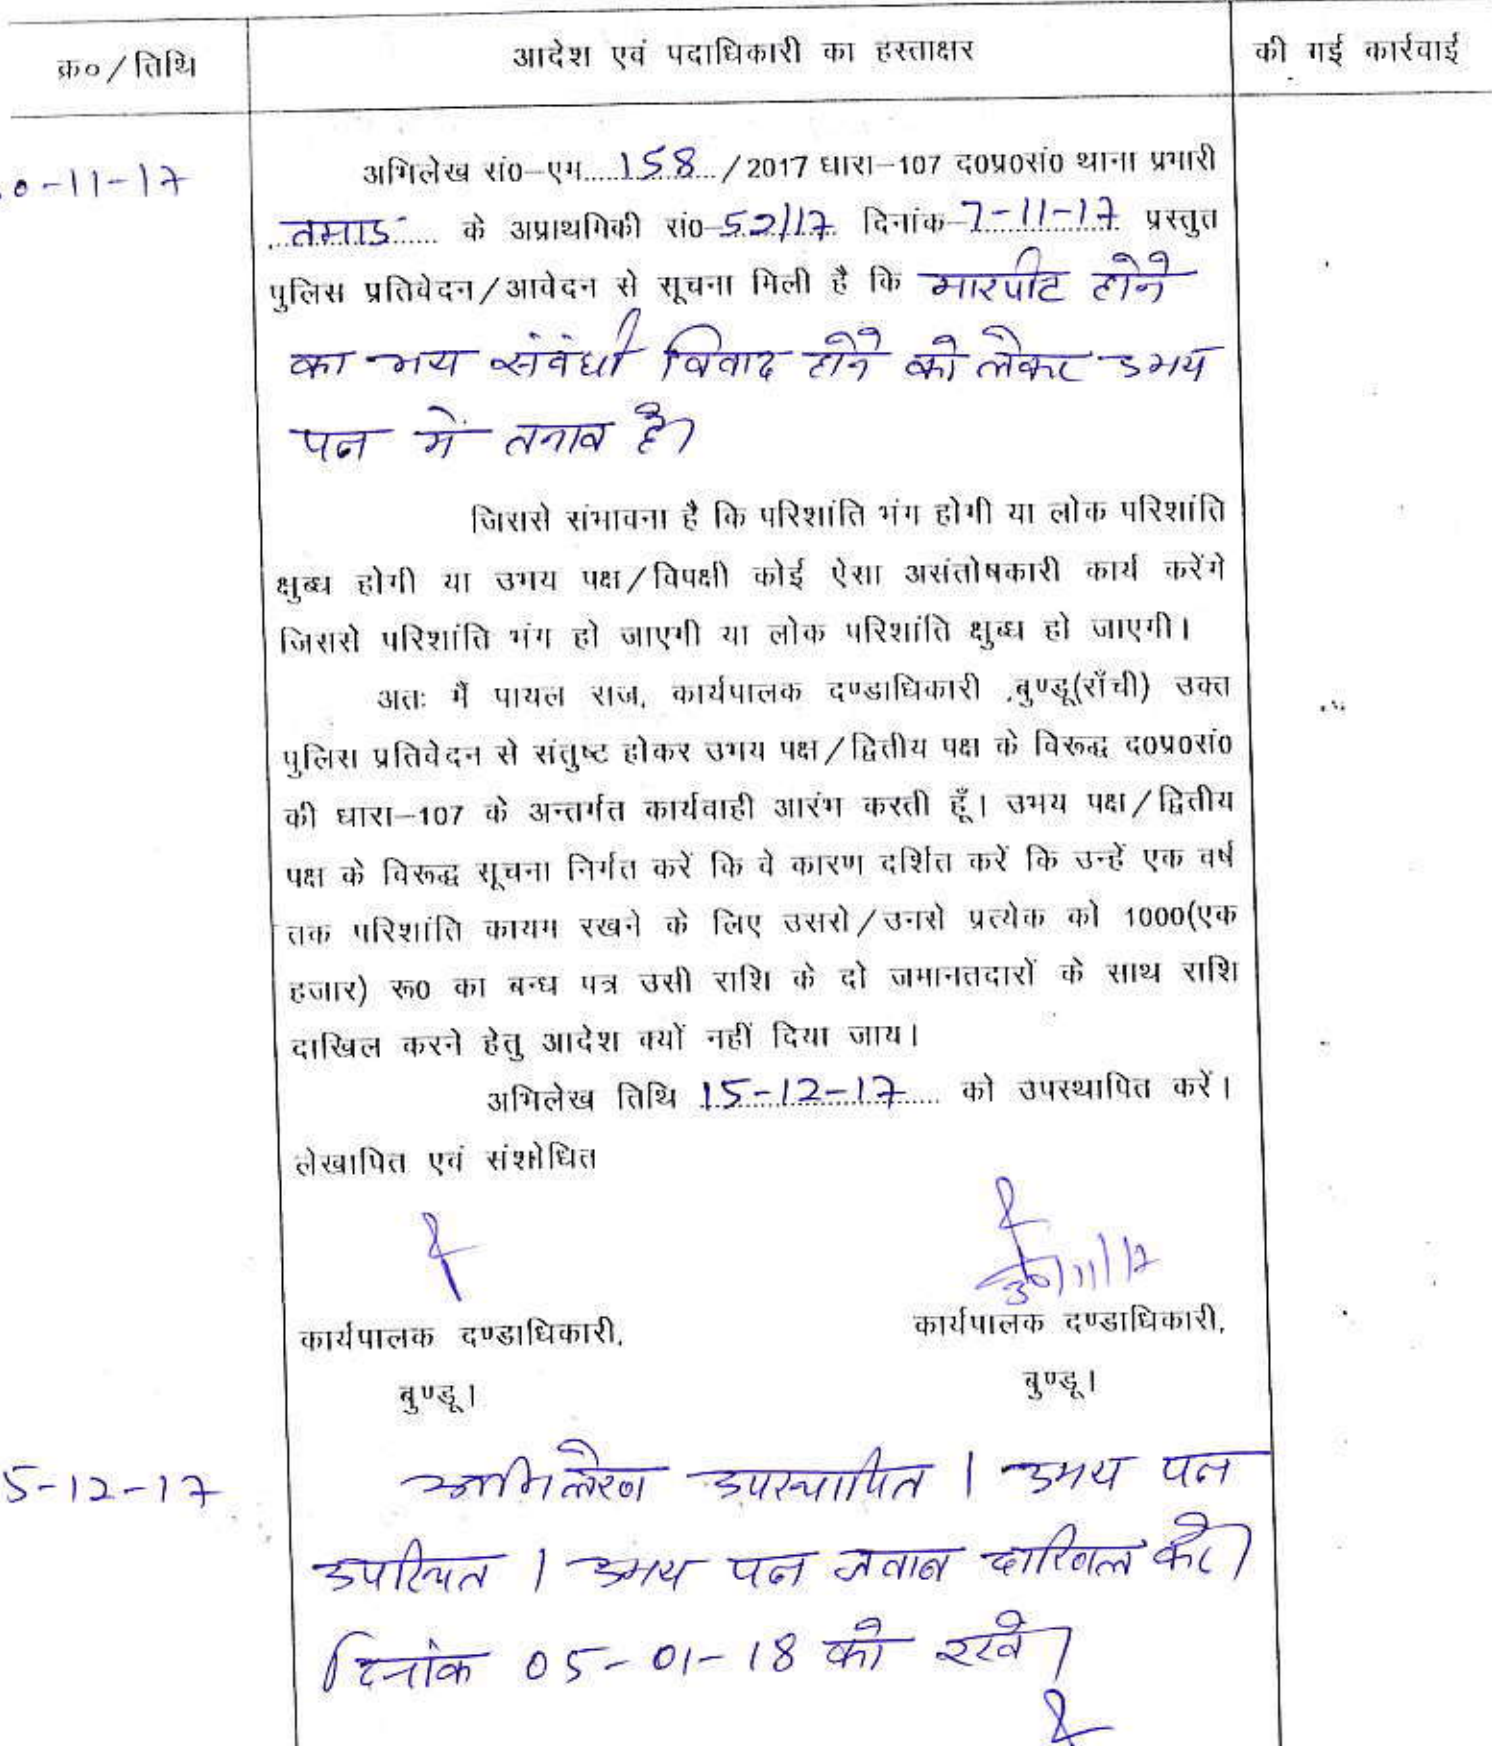 क्र०/तिथि
आदेश एवं पदाधिकारी का हस्ताक्षर
की गई कार्रवाई
0-11-17
अभिलेख सं0-एम 158 /2017 धारा-107 द0प्र0सं0 थाना प्रभारी
तमाड़ के अप्राथमिकी सं0-52/17 दिनांक-7-11-17 प्रस्तुत
पुलिस प्रतिवेदन/आवेदन से सूचना मिली है कि मारपीट होने
का भय संबंधी विवाद होने को लेकर उभय
पक्ष में तनाव है।
जिससे संभावना है कि परिशांति भंग होगी या लोक परिशांति
क्षुब्ध होगी या उभय पक्ष/विपक्षी कोई ऐसा असंतोषकारी कार्य करेंगे
जिससे परिशांति भंग हो जाएगी या लोक परिशांति क्षुब्ध हो जाएगी।
अतः मैं पायल राज, कार्यपालक दण्डाधिकारी ,बुण्डू(राँची) उक्त
पुलिस प्रतिवेदन से संतुष्ट होकर उभय पक्ष/द्वितीय पक्ष के विरूद्ध द0प्र0सं0
की धारा-107 के अन्तर्गत कार्यवाही आरंभ करती हूँ। उभय पक्ष/द्वितीय
पक्ष के विरूद्ध सूचना निर्गत करें कि वे कारण दर्शित करें कि उन्हें एक वर्ष
तक परिशांति कायम रखने के लिए उससे/उनसे प्रत्येक को 1000(एक
हजार) रू0 का बन्ध पत्र उसी राशि के दो जमानतदारों के साथ राशि
दाखिल करने हेतु आदेश क्यों नहीं दिया जाय।
अभिलेख तिथि 15-12-17 को उपस्थापित करें।
लेखापित एवं संशोधित
30/11/17
कार्यपालक दण्डाधिकारी,
कार्यपालक दण्डाधिकारी,
बुण्डू।
बुण्डू।
5-12-17
अभिलेख उपस्थापित । उभय पक्ष
उपस्थित । उभय पक्ष जवाब दाखिल करें।
दिनांक 05-01-18 को रखें।